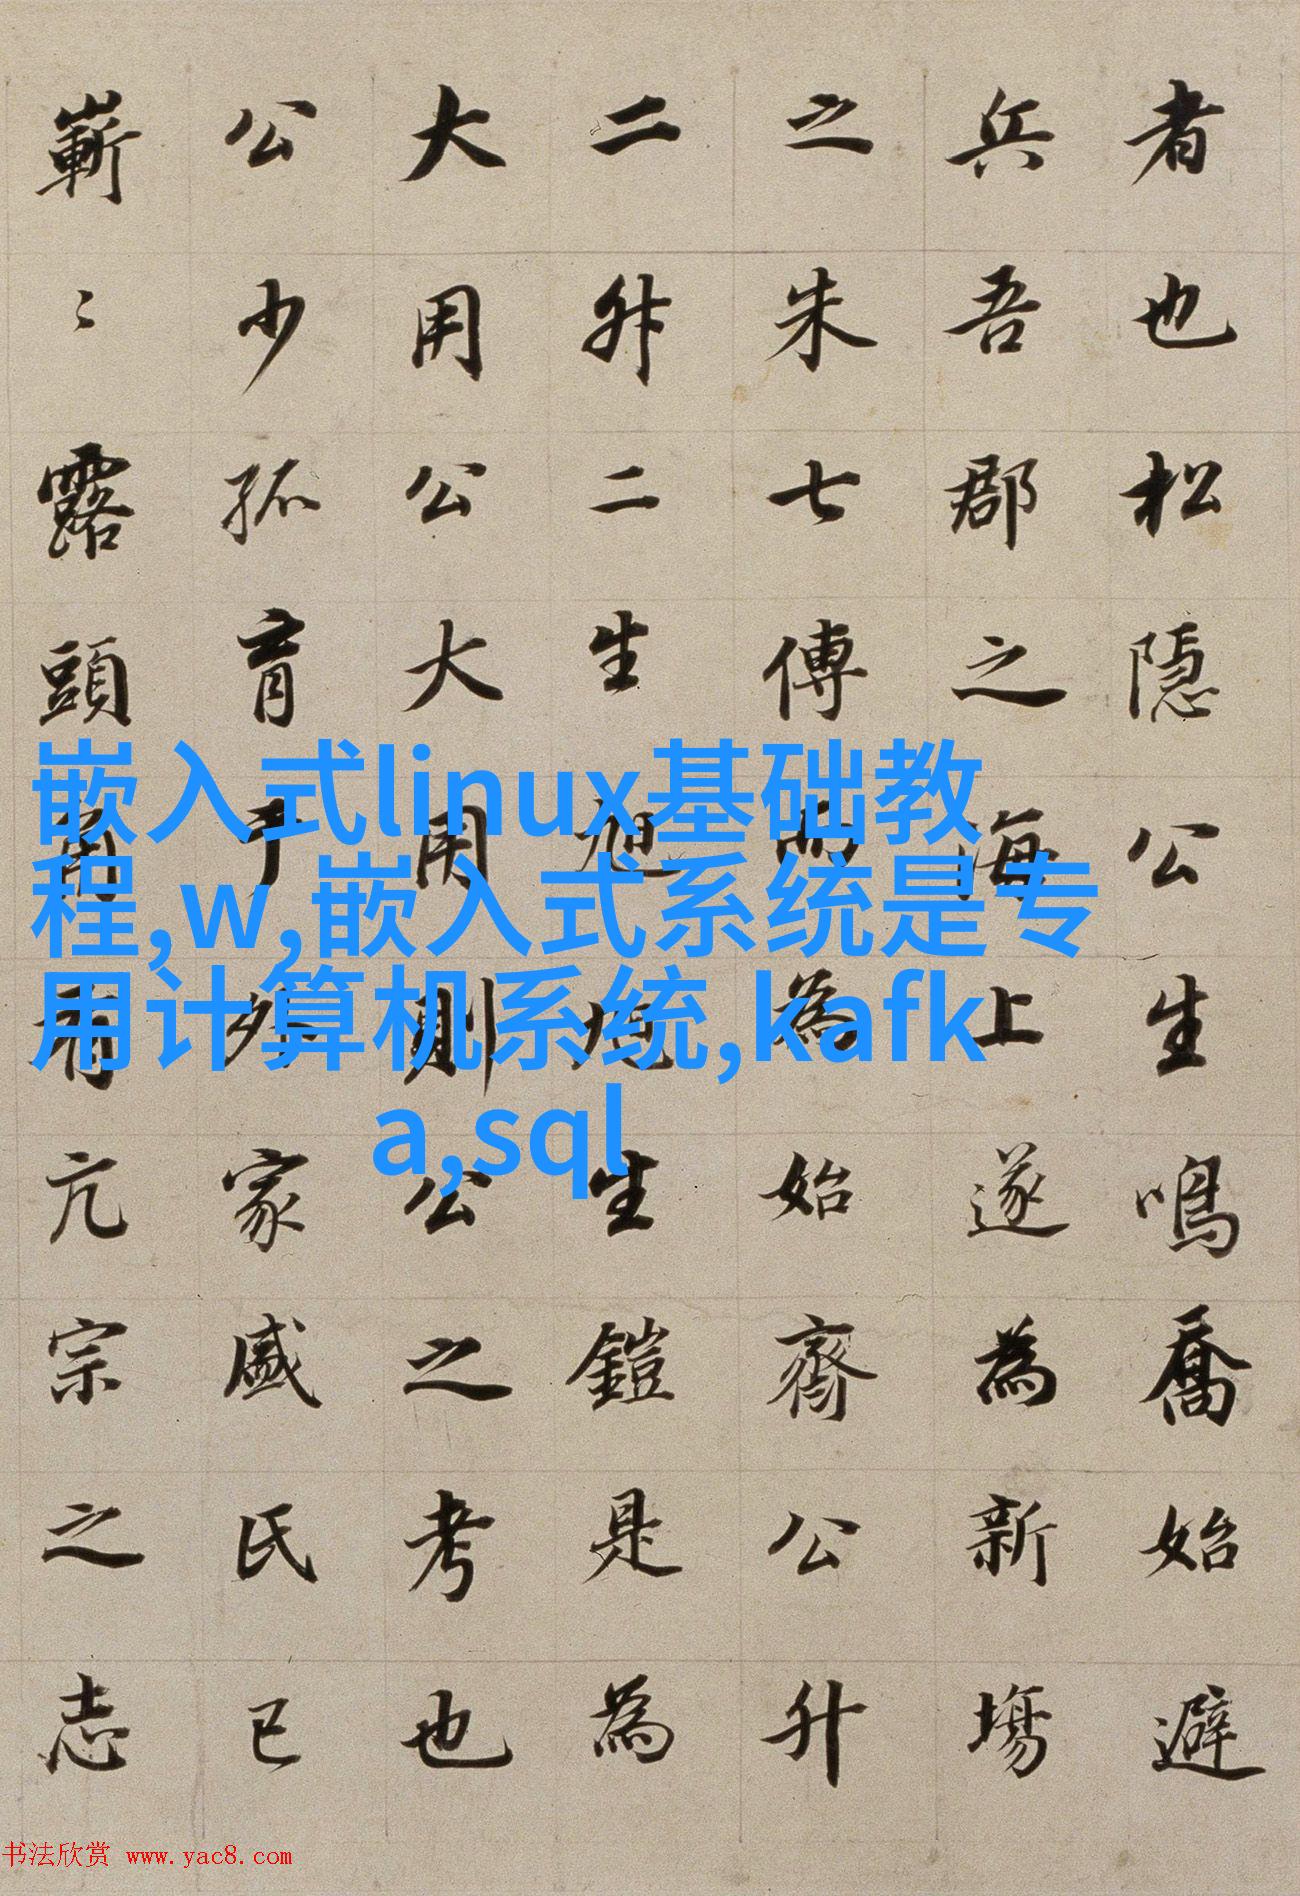 者也松隱公生鳴喬始避
兵吾郡之海上遂為新塲
之朱七傅而為始齊公升
二升二生旭旭生鎧是為
大用公大用則公之考也
公少孤育于外家戚氏已
嶄〻露頭角有亢宗之志
嵌入式linux基础教
程,w,嵌入式系统是专
用计算机系统,kafk
a,sql
书法欣赏 www.yac8.com